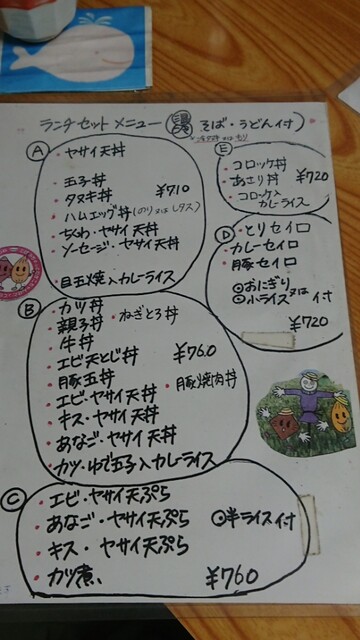 ランチセットメニュー (温又は冷 そば・うどん付)
A
・ヤサイ天丼
・玉子丼
・タヌキ丼 ¥710
・ハムエッグ丼(のり又はレタス)
・ちくわ・ヤサイ天丼
・ソーセージ・ヤサイ天丼
・目玉焼入カレーライス
E
・コロッケ丼
・あさり丼 ¥720
・コロッケ入カレーライス
D
・とりセイロ
・カレーセイロ
・豚セイロ
◎おにぎり又は
◎小ライス付
¥720
B
・カツ丼
・親子丼 ・ねぎとろ丼
・牛丼
・エビ天とじ丼 ¥760
・豚玉丼
・エビ・ヤサイ天丼 ・豚焼肉丼
・キス・ヤサイ天丼
・あなご・ヤサイ天丼
・カツ・ゆで玉子入カレーライス
C
・エビ・ヤサイ天ぷら
・あなご・ヤサイ天ぷら ◎半ライス付
・キス・ヤサイ天ぷら
・カツ煮 ¥760